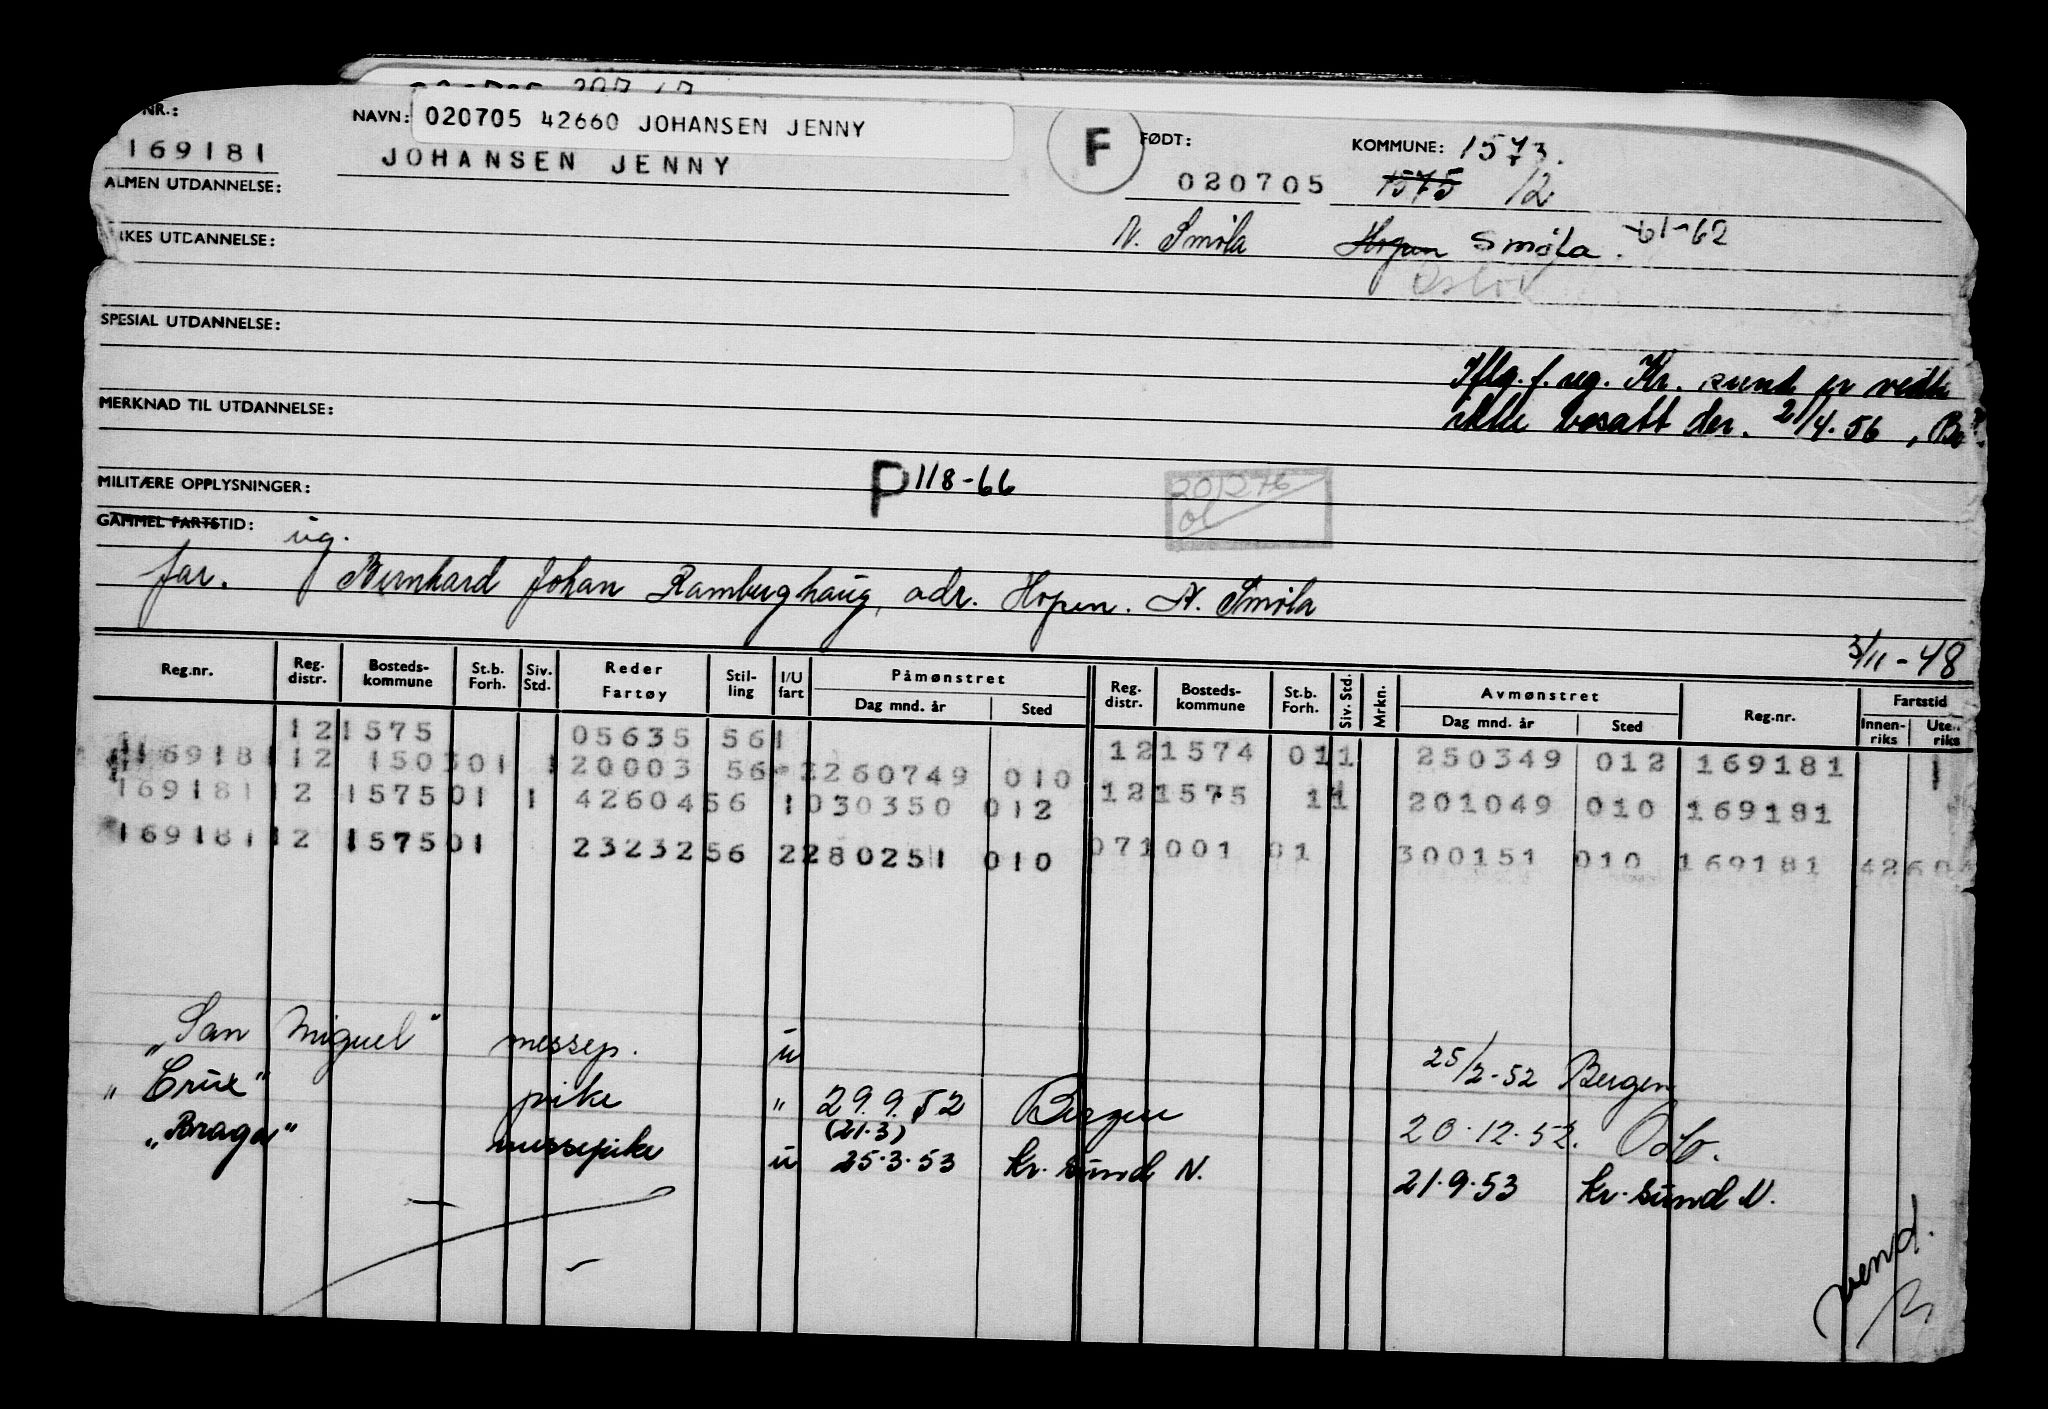 NR.:
169181
NAVN: 020705 42660 JOHANSEN JENNY
JOHANSEN JENNY
F
FØDT:
020705
KOMMUNE: 1573.
1575 12
ALMEN UTDANNELSE:
N. Smøla Hopen Smøla. -61-62
Oslo
RKES UTDANNELSE:
SPESIAL UTDANNELSE:
Iflg. f. reg. Kr. sund er vedk
ikke bosatt der. 2/4.56,
MERKNAD TIL UTDANNELSE:
MILITÆRE OPPLYSNINGER:
P 118-66
201276
ol
GAMMEL FARTSTID: ug.
far. Bernhard Johan Ramberghaug, adr. Hopen. N. Smøla
3/11-48
Reg.nr. Reg. distr. Bosteds-kommune St.b. Forh. Siv. Std. Reder Fartøy Stil-ling I/U fart Påmønstret Dag mnd. år Sted Reg. distr. Bosteds-kommune St.b. Forh. Siv. Std. Mrkn. Avmønstret Dag mnd. år Sted Reg.nr. Fartstid Innen-riks Uten-riks
12 1575 05635 56 1 12 1574 01 1 250349 012 169181 1
169181 12 150301 1 20003 56 2 260749 010 12 1575 11 201049 010 169181
169181 12 1575 01 1 42604 56 1 030350 012 07 1001 01 300151 010 169181 4260
169181 12 1575 01 23232 56 2 280251 010
"San Miguel" messep. u 25/2-52 Bergen
"Crux" pike " 29.9.52 Bergen 20.12.52. Oslo.
(21.3)
"Braga" messepike u 25.3.53 Kr. sund N. 21.9.53 Kr. sund N.
vend.